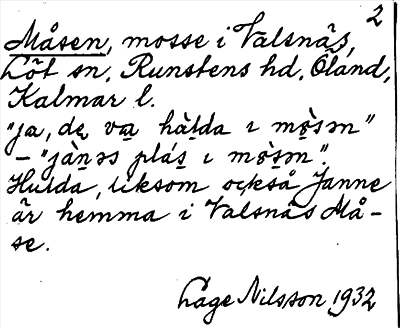 2
Måsen, mosse i Valsnäs,
Löt sn, Runstens hd, Öland,
Kalmar l.
"ja, de va hὰlda ı mɵ̀sən"
– "jὰnəs plás ı mɵ̀sən".
Hulda, liksom också Janne
är hemma i Valsnäs Må-
se.
Låge Nilsson 1932